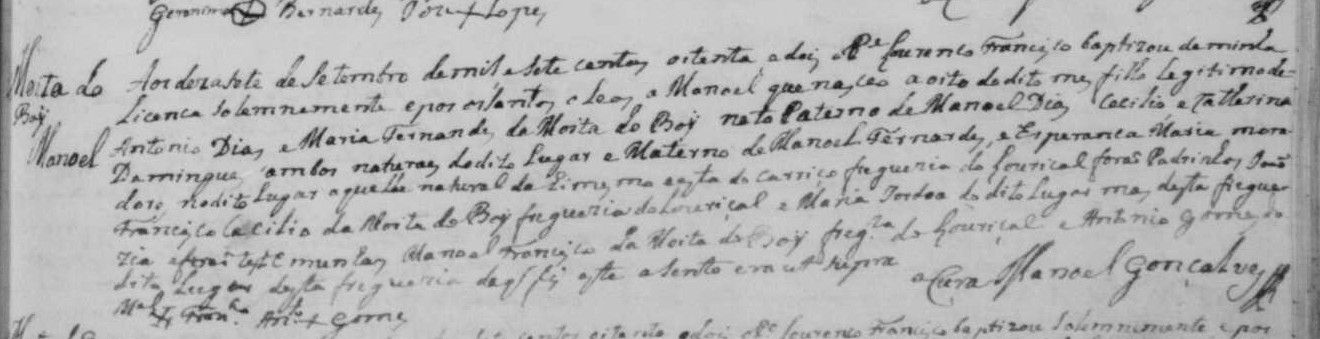 Geronimo Bernardes Joze + Lopes
Moita do Boÿ
Manoel
Aos dezasete de Setembro de mil e sete centos oitenta e dois o Pe Lourenço Francisco baptizou de minha
Licença solemnemente e pos os Santos oleos a Manoel que nasceo a oito do dito mes filho Legitimo de
Antonio Dias e Maria Fernandes da Moita do Boÿ neto Paterno de Manoel Dias Cecilio e Catherina
Domingues ambos naturaes do dito Lugar e Materno de Manoel Fernandes e Esperança Maria mora
dores no dito Lugar aquelle natural da e esta do Carriço freguezia do Louriçal forão Padrinhos
Francisco Cecilio da Moita do Boÿ freguezia do Louriçal e Maria do dito Lugar mas desta fregue
zia e forão testemunhas Manoel Francisco da Moita do Boÿ fregia do Louriçal e Antonio Gomes do
dito Lugar desta freguezia de q fis este asento era ut supra
o Cura Manoel Gonçalves
Mel + Franco Anto + Gomes
centos oitenta e dois o Pe Lourenço Francisco baptizou solemnemente e pos